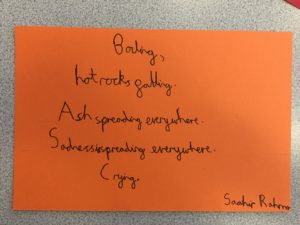 Boiling,
hot rocks galling.
Ash spreading everywhere.
Sadness is spreading everywhere.
Crying.
Saahir